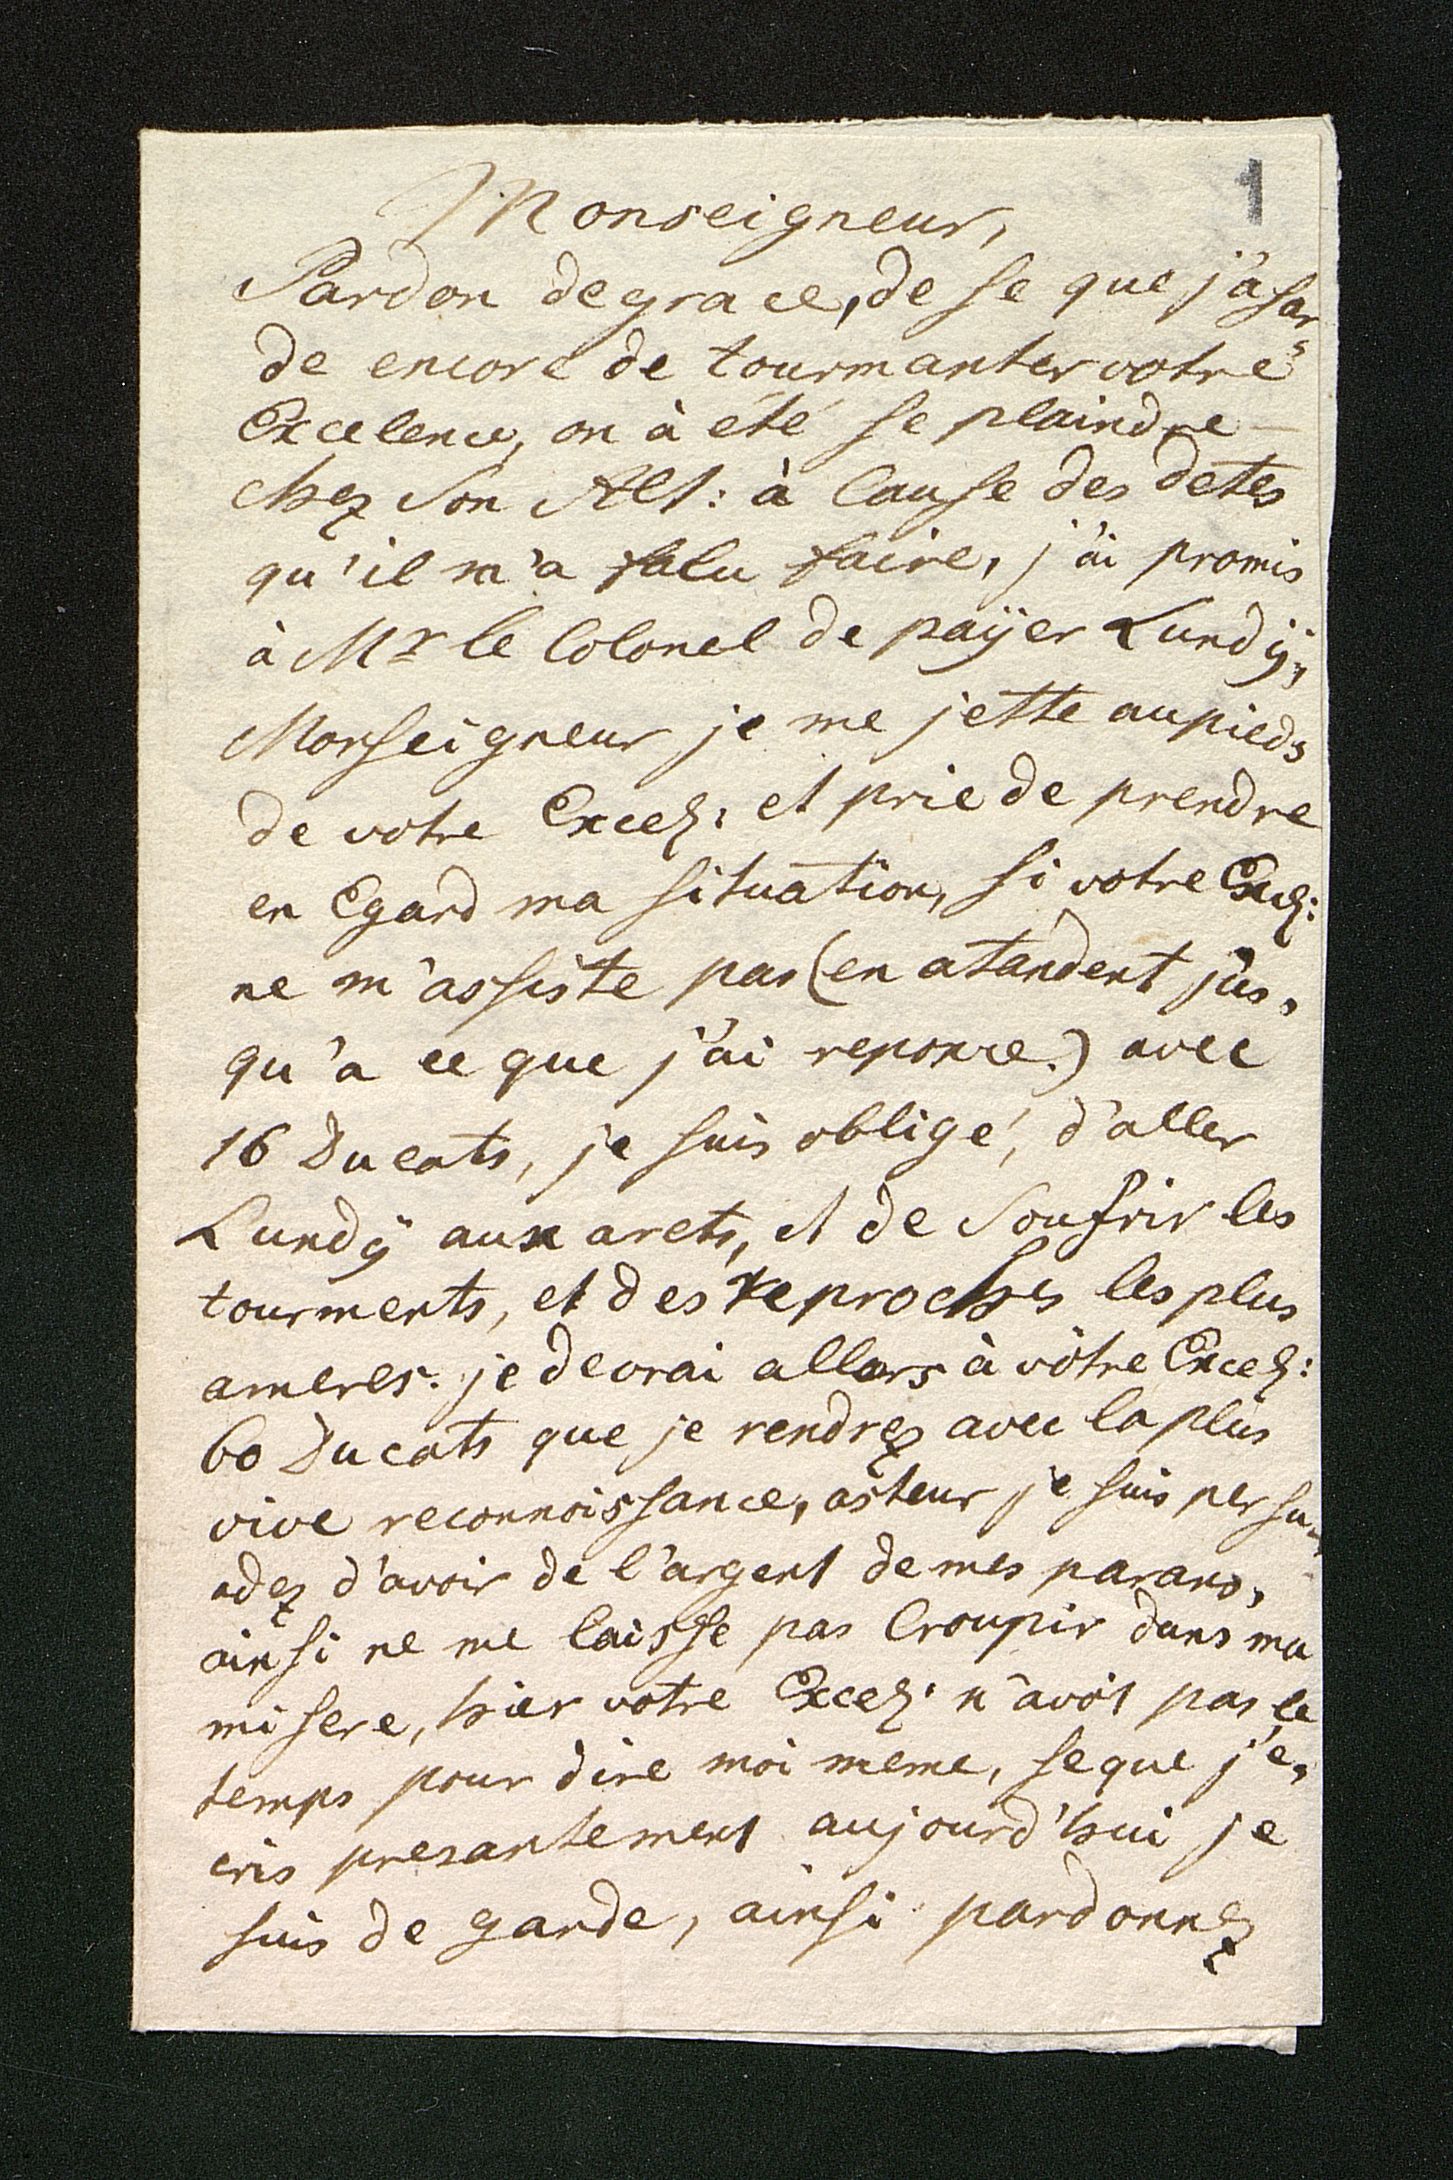 1
Monseigneur,
Pardon de grace, de se que j'asar„
de encore de tourmanter votre
Excelence, on à été se plaindre —
chez Son Alt: à Cause des detes
qu'il m'a falu faire, j'ai promis
à Mr le Colonel de paÿer Lundÿ,
Monseigneur je me jette au pieds
de votre Excel: et prie de prendre
en Egard ma situation, si votre Excl:
ne m'assiste pas (en atandent jus„
qu'a ce que j'ai reponce.) avec
16 Ducats, je suis obligé, d'aller
Lundÿ aux arets, et de Soufrir les
tourments, et des reproches les plus
ameres. je devrai allors à vôtre Excel:
60 Ducats que je rendrez avec la plus
vive reconnoissance, asteur je suis persu„
adez d'avoir de l'argent de mes parans,
ainsi ne me laisse pas Croupir dans ma
misere, hier votre Excel: n'avoit pas le
temps pour dire moi meme, se que j'e„
cris presantement aujourd'hui je
suis de garde, ainsi pardonnez